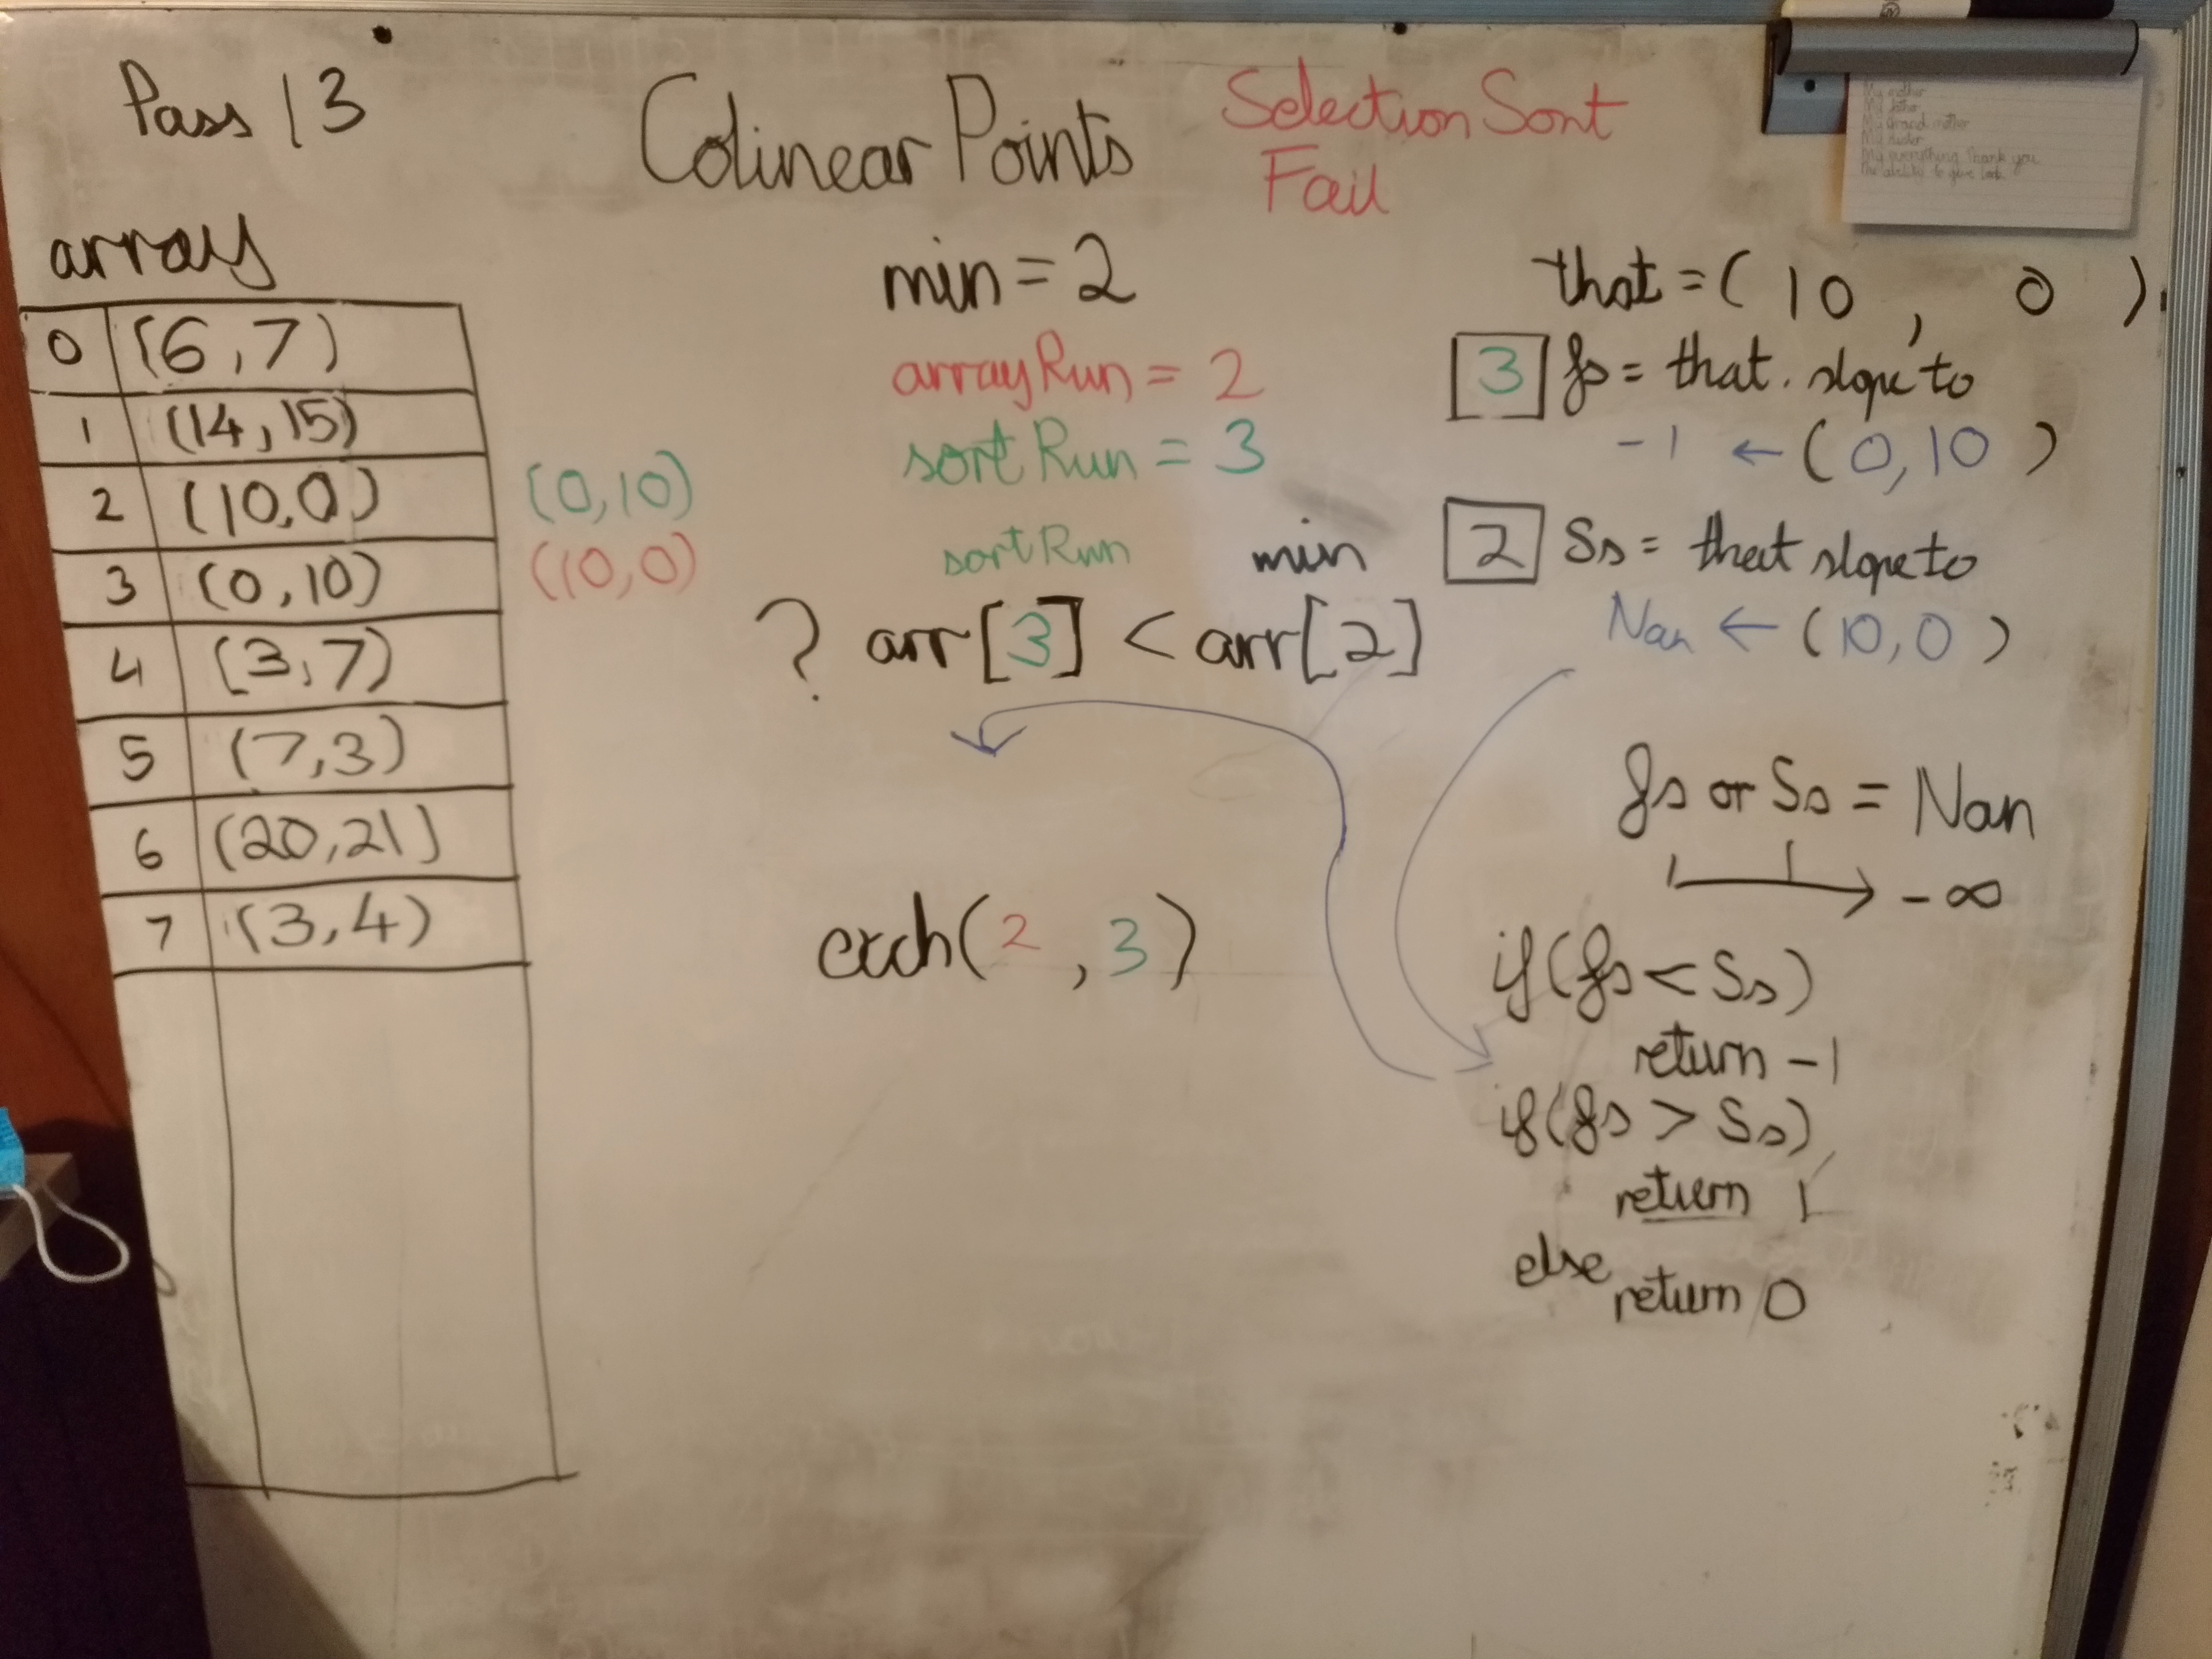 Pass 13
Colinear Points
Selection Sort
Fail
array
0 (6,7)
1 (14,15)
2 (10,0)
3 (0,10)
4 (3,7)
5 (7,3)
6 (20,21)
7 (3,4)
(0,10)
(10,0)
min = 2
arrayRun = 2
sortRun = 3
sortRun min
? arr[3] < arr[2]
exch(2,3)
that = (10, 0).
3 fs = that. slope to
-1 ← (0,10)
2 Ss = that slope to
Nan ← (10,0)
fs or Ss = Nan
→ -∞
if(fs < Ss)
return -1
if(fs > Ss)
return 1
else
return 0
My mother
My father
My Grand mother
My everything Thank you